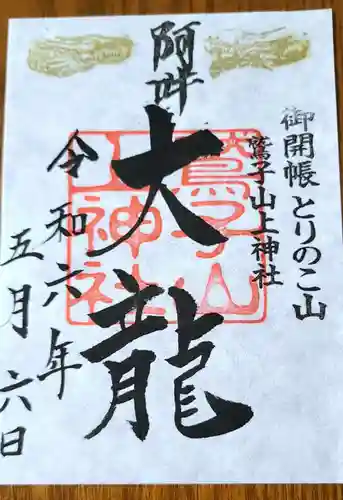 御開帳とりのこ山
鷲子山上神社
阿吽
大龍
鷲子山
上神社
令和六年
五月六日